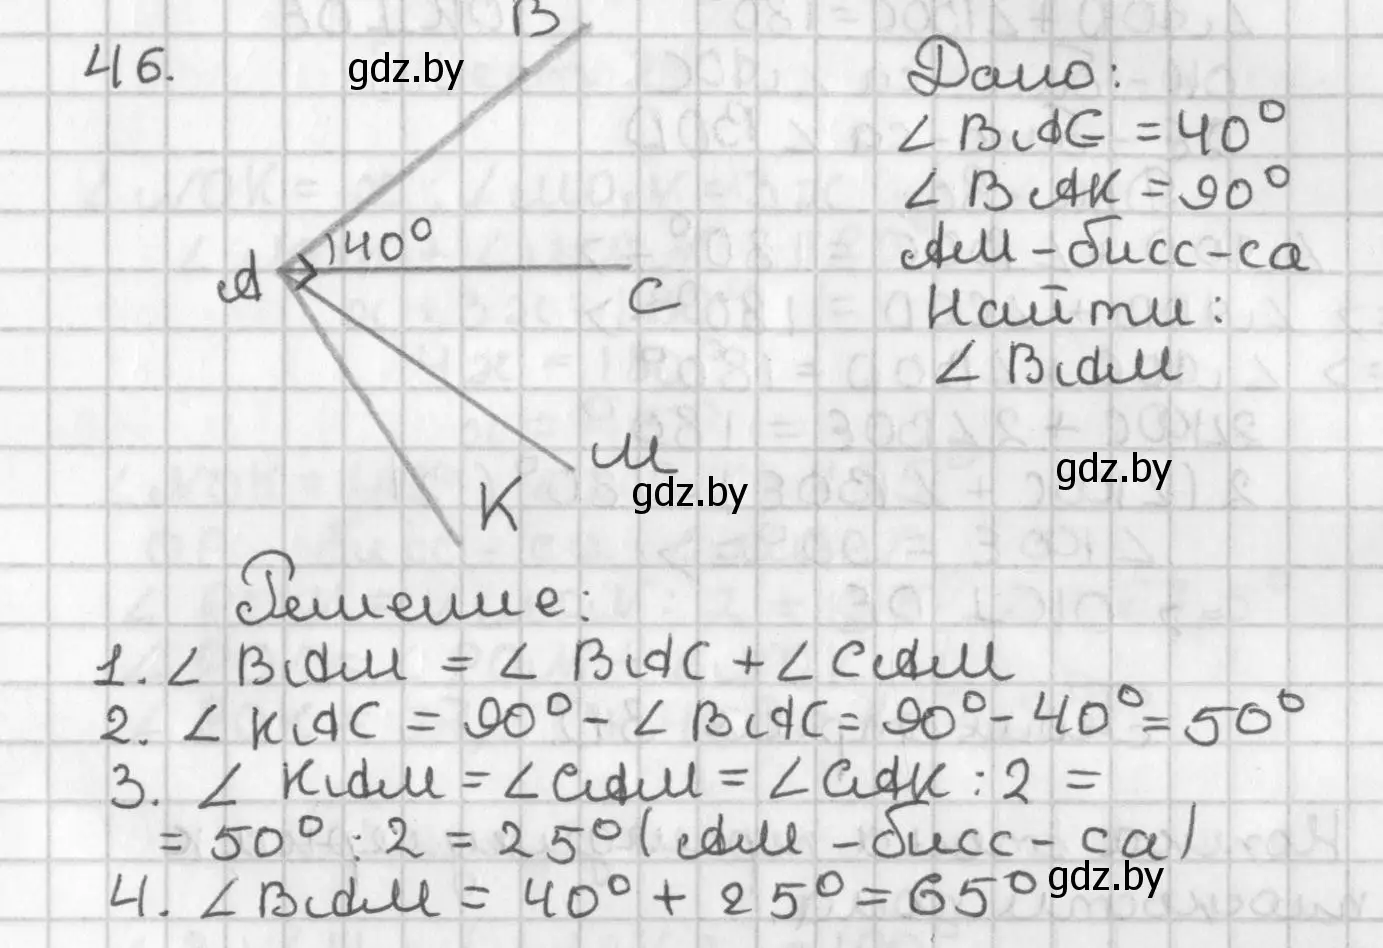 46.
gdz.by
B
A
40°
C
M
K
gdz.by
Дано:
∠ BAC = 40°
∠ BAK = 90°
AM - бисс-са
Найти:
∠ BAM
gdz.by
Решение:
1. ∠ BAM = ∠ BAC + ∠ CAM
2. ∠ KAC = 90° - ∠ BAC = 90° - 40° = 50°
3. ∠ KAM = ∠ CAM = ∠ CAK : 2 =
= 50° : 2 = 25° (AM - бисс-са)
4. ∠ BAM = 40° + 25° = 65°
gdz.by